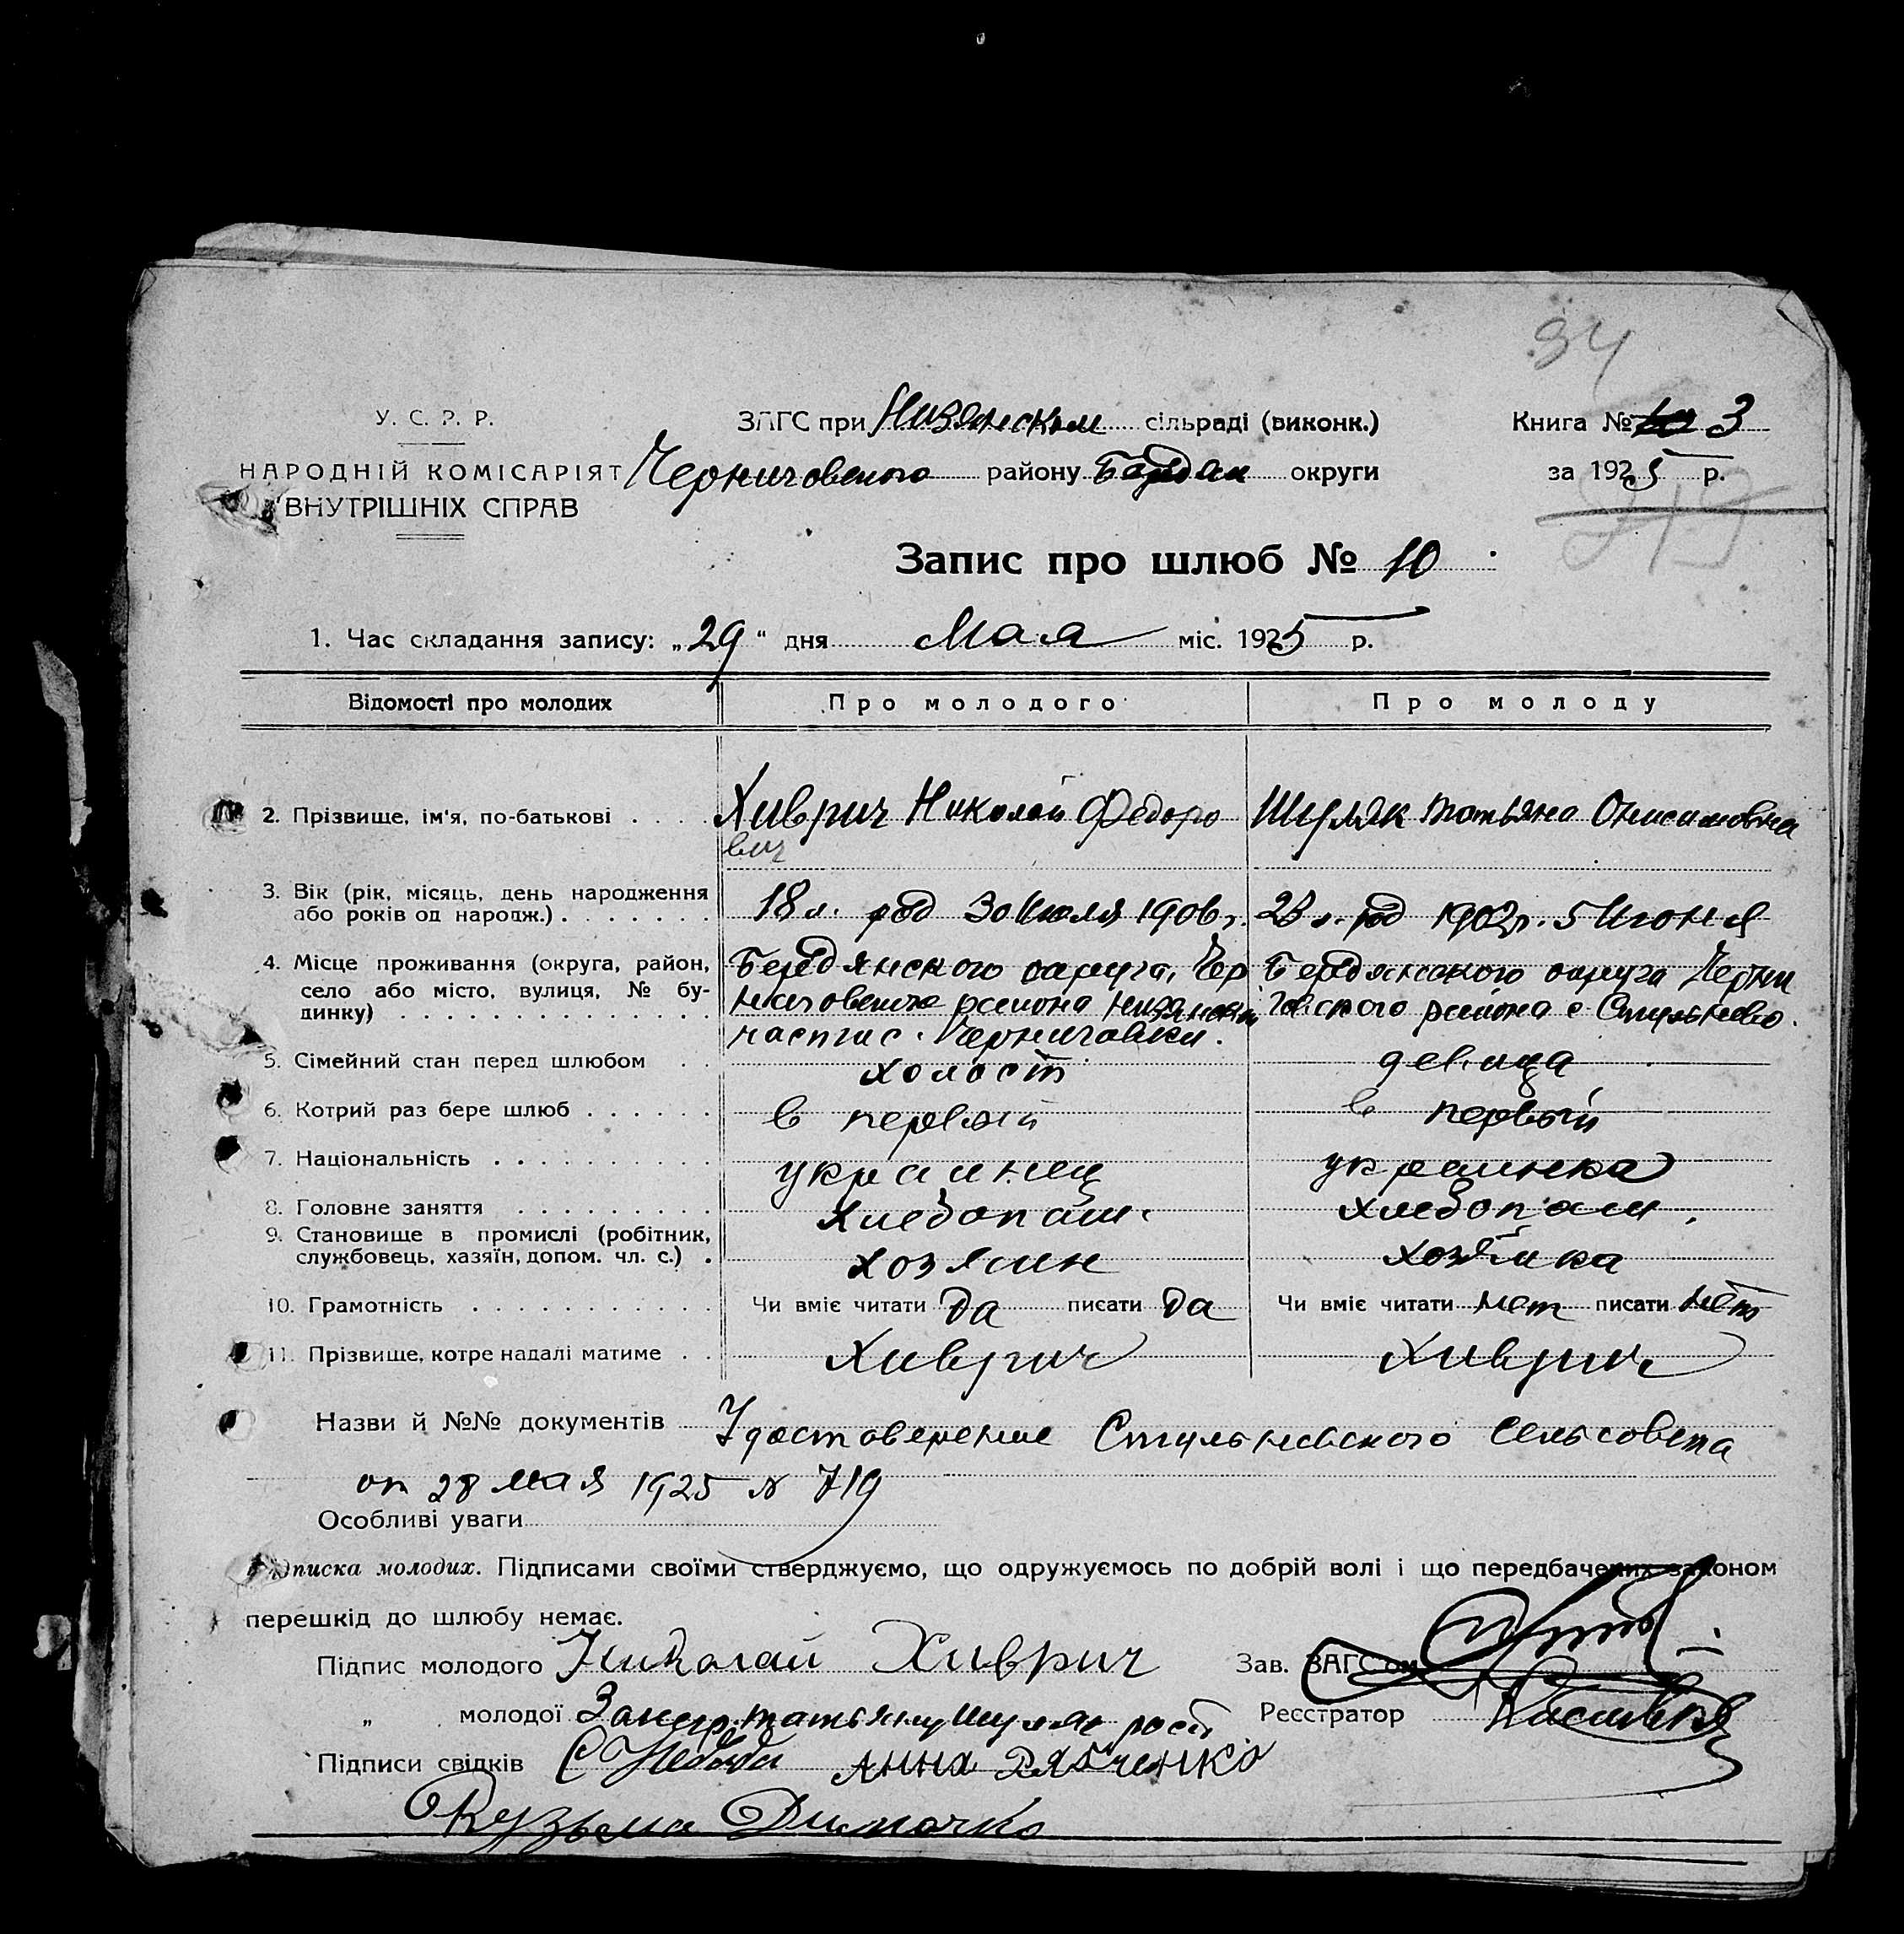 94
У. С. Р. Р.
ЗАГС при Низянском сільраді (виконк.)
Книга № 3
НАРОДНІЙ КОМІСАРІЯТ
Черниговского району Бердян округи
за 1925 р.
ВНУТРІШНІХ СПРАВ
Запис про шлюб № 10
1. Час складання запису: „29“ дня Мая міс. 1925 р.
Відомості про молодих
Про молодого
Про молоду
2. Прізвище, ім'я, по-батькові
Хиврич Николай Федоро
вич
Шуляк Татьяна Онисимовна
3. Вік (рік, місяць, день народження
або років од народж.)
18 л. род 30 Июля 1906 г.
23 л. род 1902 г. 5 Июня
4. Місце проживання (округа, район,
село або місто, вулиця, № бу-
динку)
Бердянского округа, Чер
ниговского района Низянской
части с. Черниговки.
Бердянского округа Черни
говского района с Стульнево.
5. Сімейний стан перед шлюбом
холост
девица
6. Котрий раз бере шлюб
в первый
в первый
7. Національність
украинец
украинка
8. Головне заняття
хлебопаш.
хлебопаш.
9. Становище в промислі (робітник,
службовець, хазяїн, допом. чл. с.)
хозяин
хозяйка
10. Грамотність
Чи вміє читати Да писати Да
Чи вміє читати нет писати нет
11. Прізвище, котре надалі матиме
Хиврич
Хиврич
Назви й №№ документів Удостоверение Стульневского Сельсовета
от 28 мая 1925 № 719
Особливі уваги
Підписка молодих. Підписами своїми стверджуємо, що одружуємось по добрій волі і що передбачених законом
перешкід до шлюбу немає.
Підпис молодого Николай Хиврич
Зав. ЗАГС'ом
„ молодої За негр. Татьяну Шуляк росп
Реєстратор
Підписи свідків Анна Рябченко
Кузьма